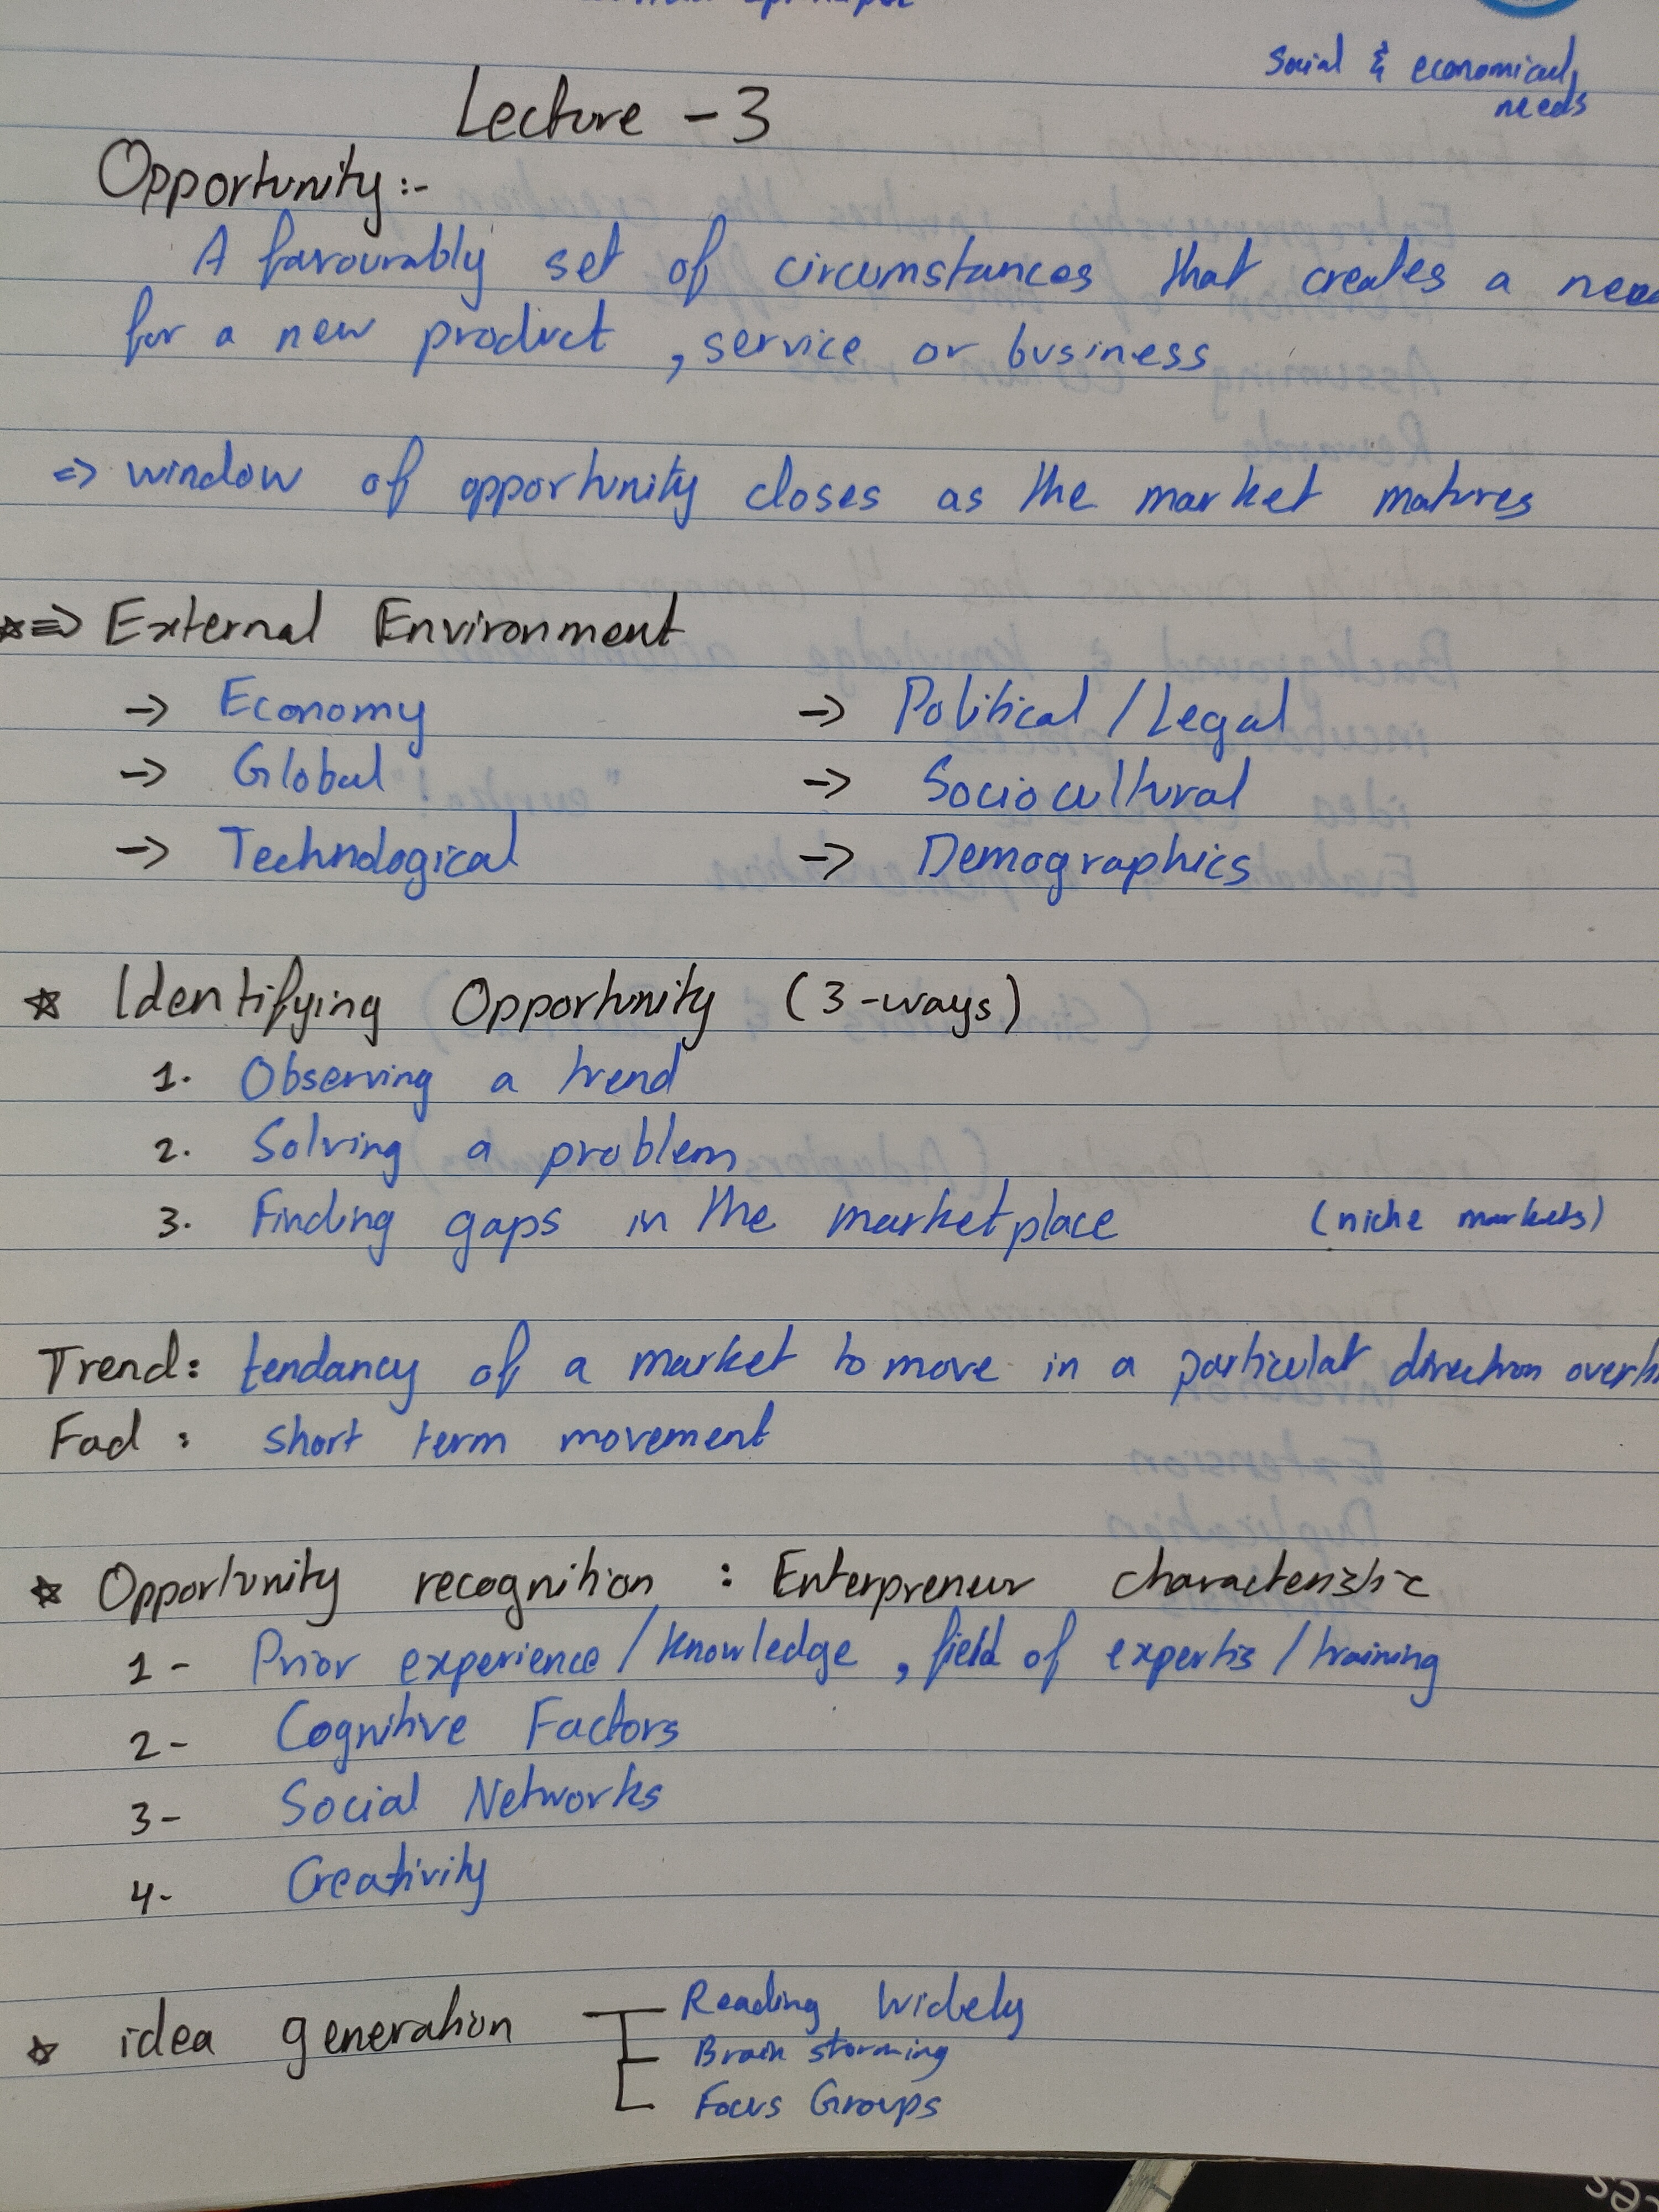 Social & economical
needs
Lecture - 3
Opportunity:-
A favourably set of circumstances that creates a need
for a new product , service or business
=> window of opportunity closes as the market matures
☆=> External Environment
-> Economy -> Political / Legal
-> Global -> Sociocultural
-> Technological -> Demographics
☆ Identifying Opportunity (3-ways)
1. Observing a trend
2. Solving a problem
3. Finding gaps in the marketplace (niche markets)
Trend: tendancy of a market to move in a particular direction
Fad : short term movement
☆ Opportunity recognition : Enterpreneur characteristic
1- Prior experience / knowledge , field of expertis / training
2- Cognitive Factors
3- Social Networks
4- Creativity
☆ idea generation
Reading Widely
Brain storming
Focus Groups